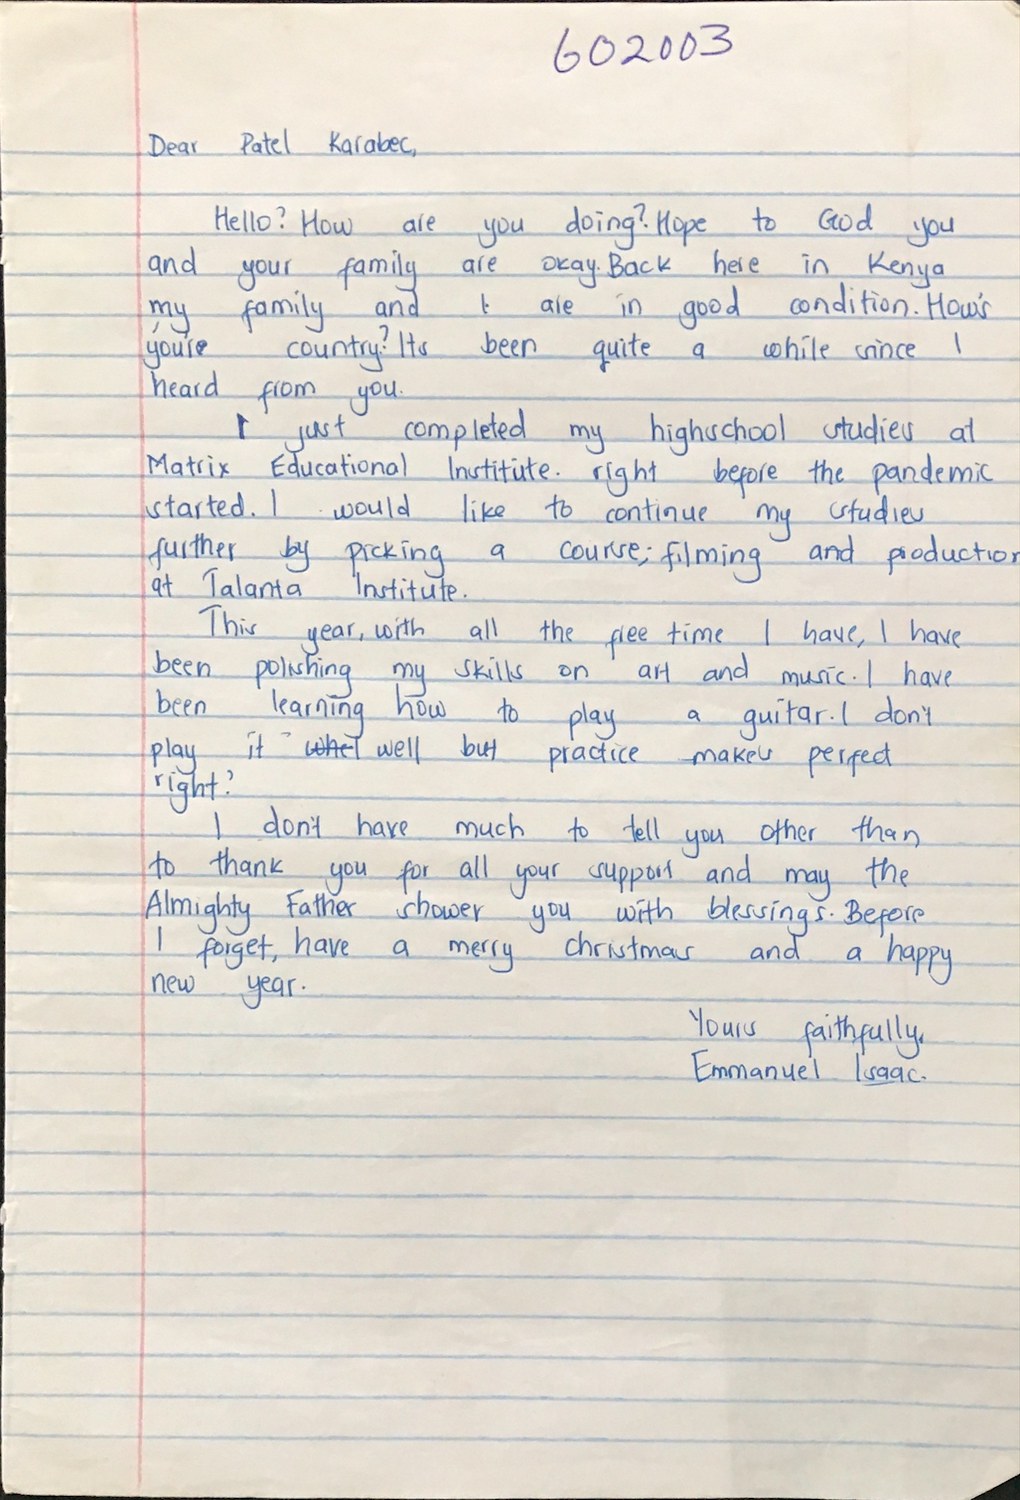 602003
Dear Patel Karabec,
Hello? How are you doing? Hope to God you
and your family are okay. Back here in Kenya
my family and I are in good condition. How's
you're country? Its been quite a while since I
heard from you.
I just completed my highschool studies at
Matrix Educational Institute. right before the pandemic
started. I would like to continue my studies
further by picking a course; filming and production
at Talanta Institute.
This year, with all the free time I have, I have
been polishing my skills on art and music. I have
been learning how to play a guitar. I don't
play it well but practice makes perfect
right?
I don't have much to tell you other than
to thank you for all your support and may the
Almighty Father shower you with blessings. Before
I forget, have a merry christmas and a happy
new year.
Yours faithfully,
Emmanuel Isaac.